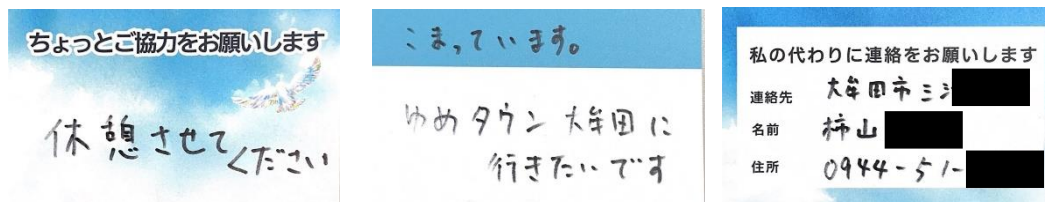 ちょっとご協力をお願いします
休憩させて
ください
こまっています。
ゆめタウン 大牟田に
行きたいです
私の代わりに連絡をお願いします
連絡先 大牟田市三
名前 柿山
住所 0944-51-